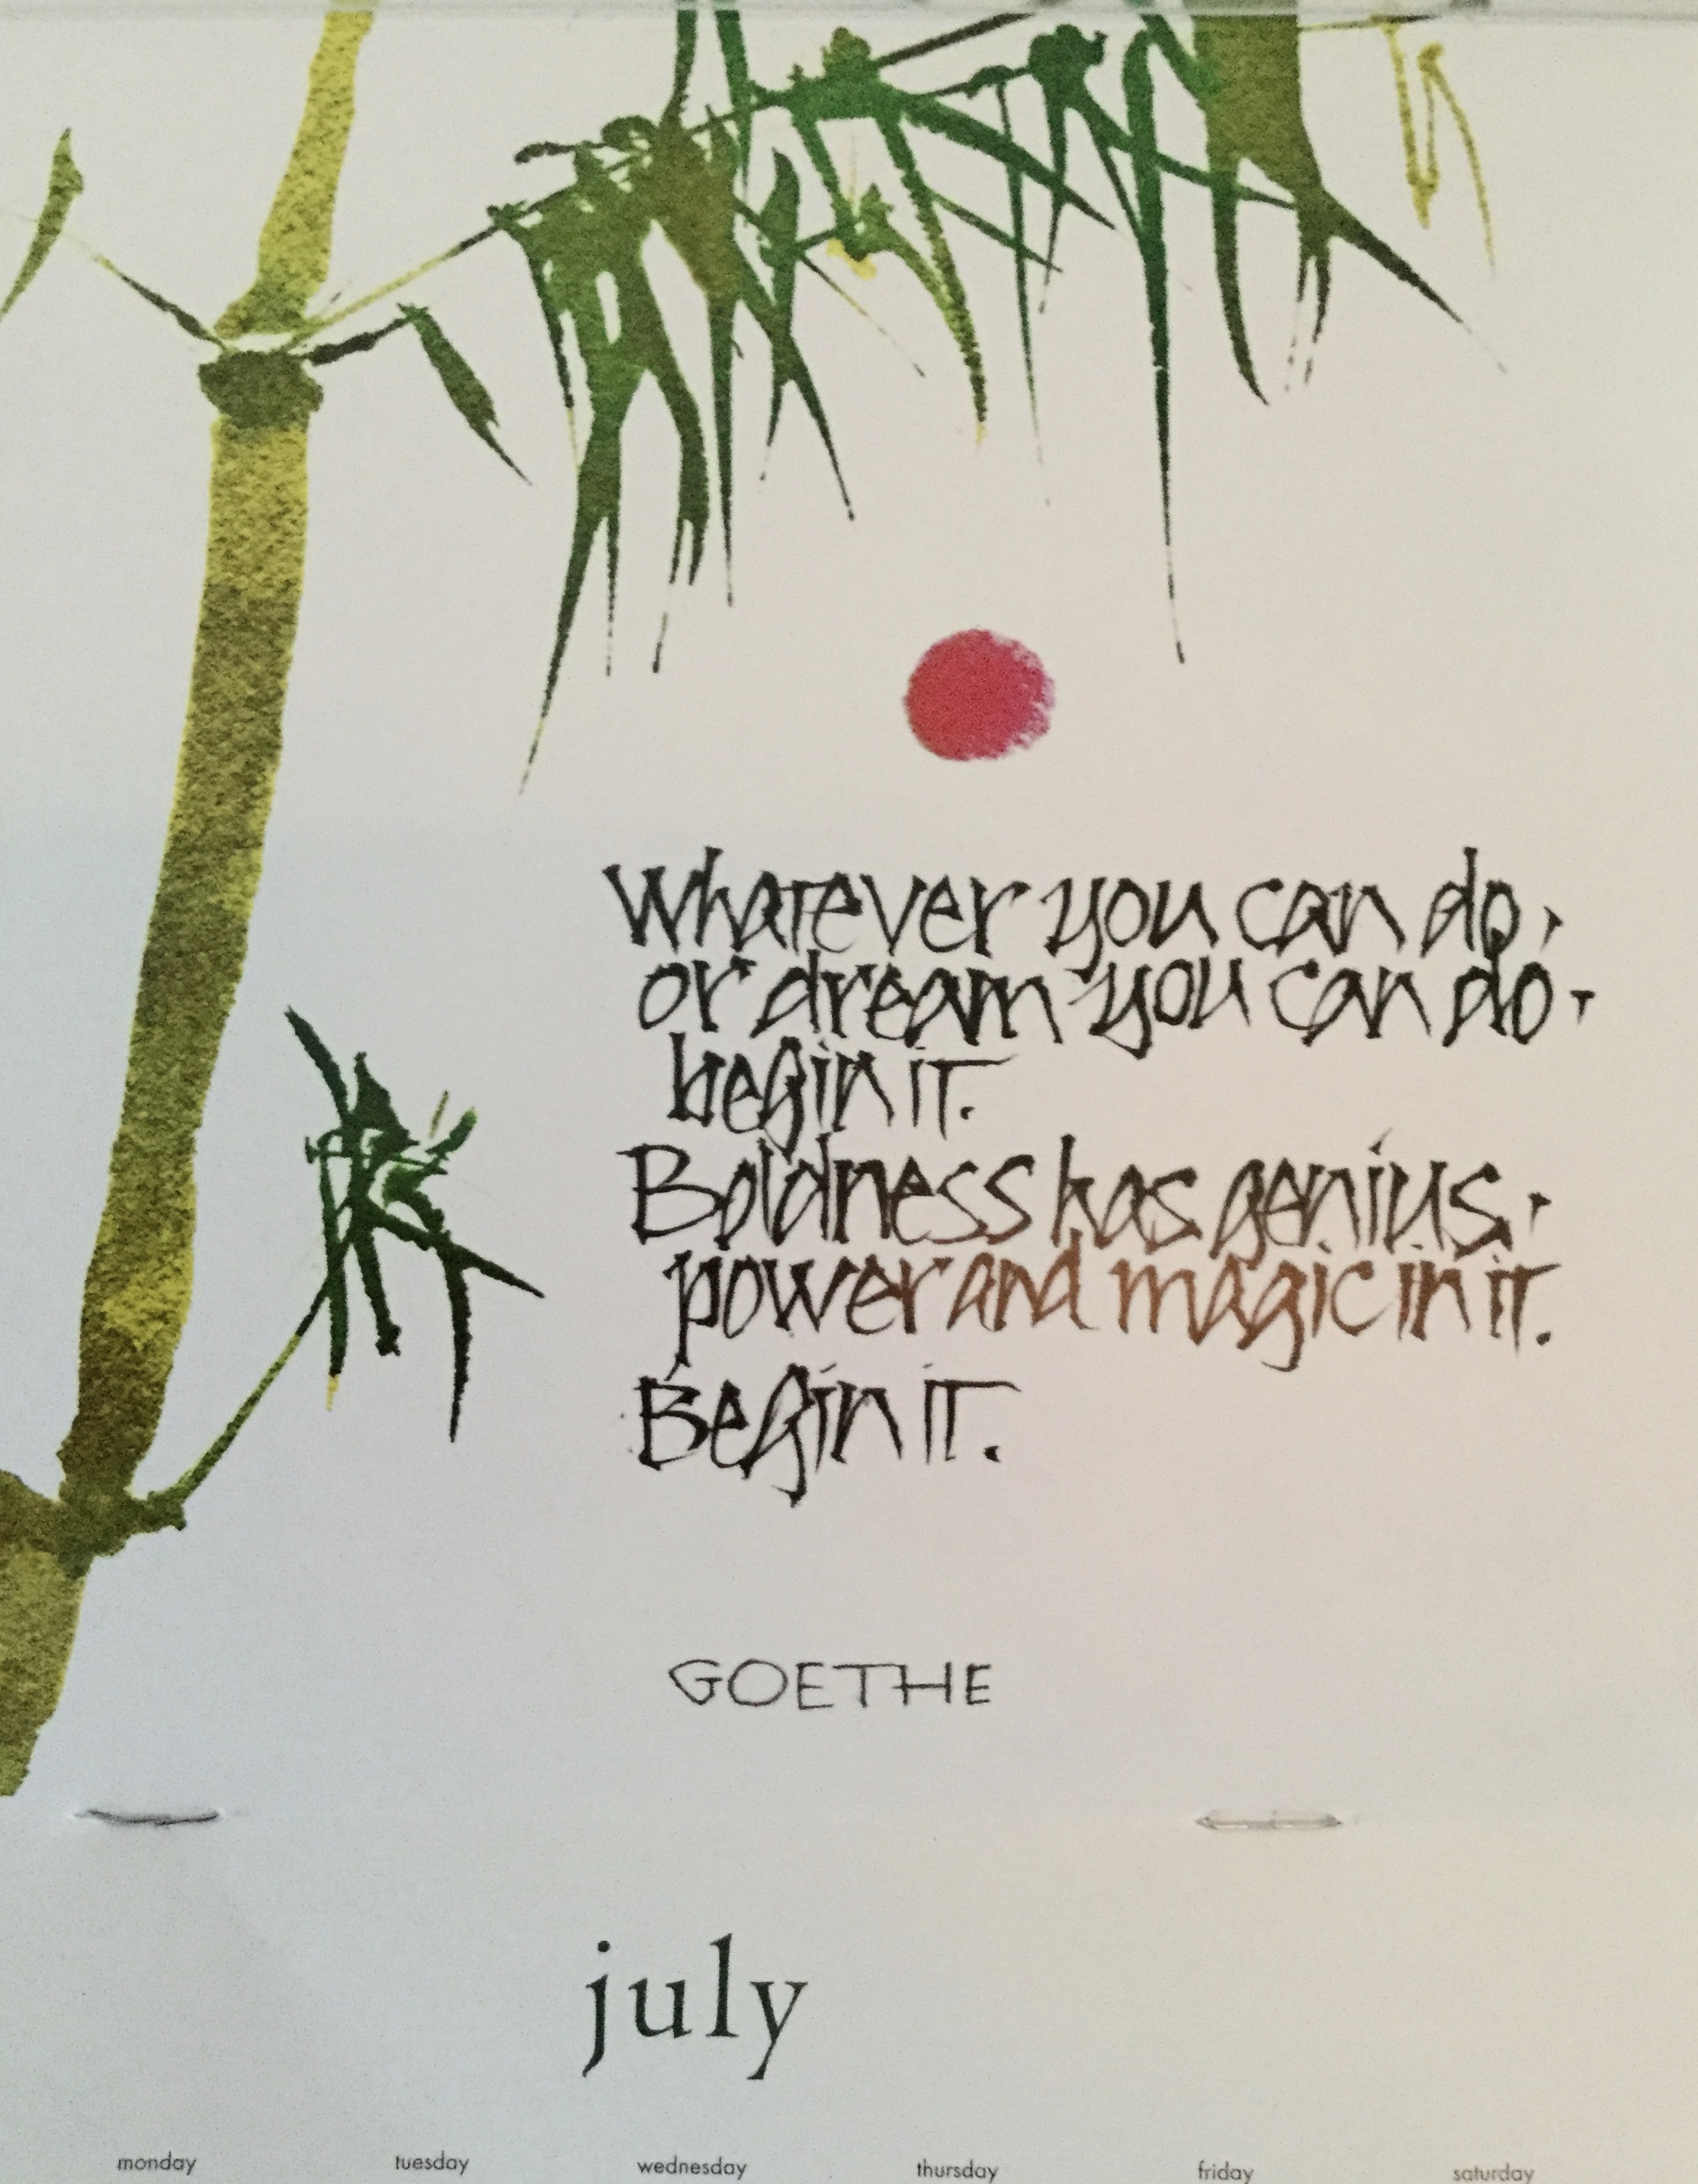 Whatever you can do,
or dream you can do,
begin it.
Boldness has genius,
power and magic in it.
Begin it.
GOETHE
july
monday tuesday wednesday thursday friday saturday